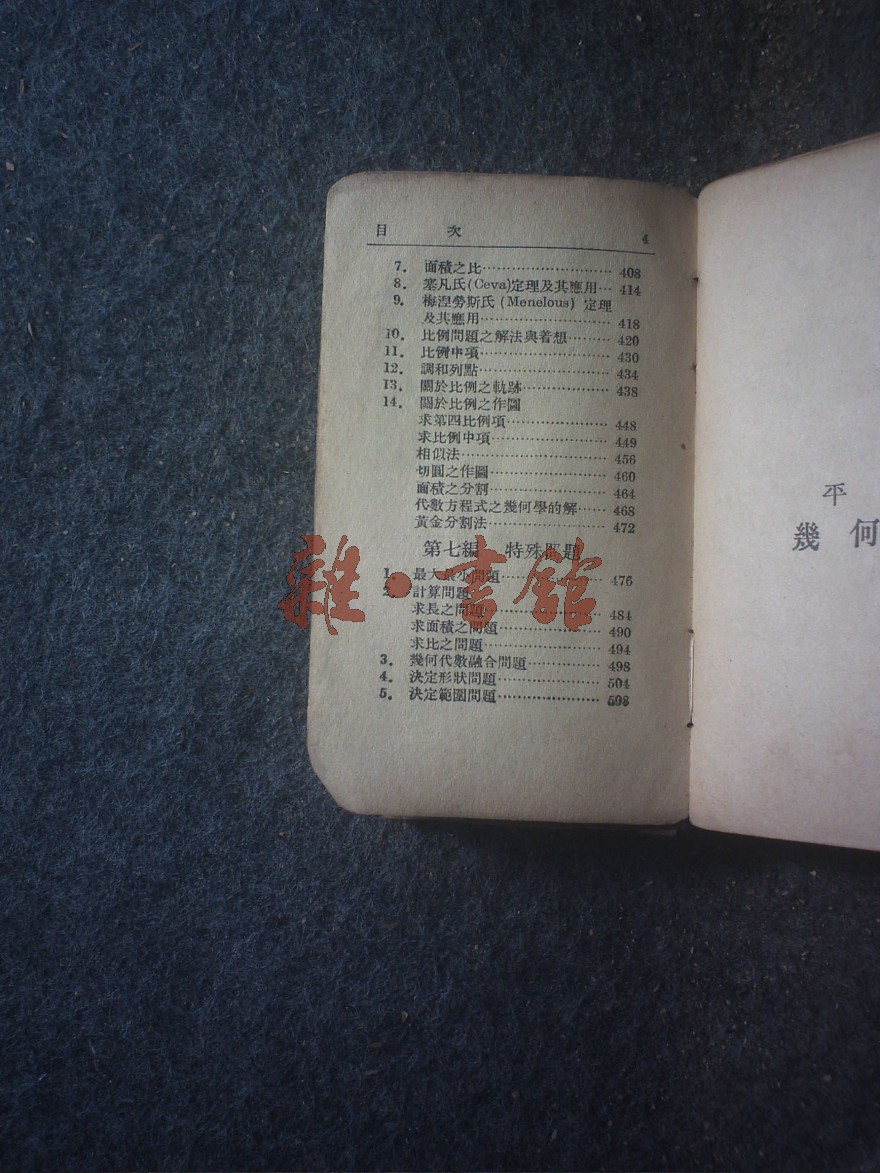 目 次 4
7. 面積之比 408
8. 塞凡氏(Ceva)定理及其應用 414
9. 梅涅勞斯氏(Menelous)定理
及其應用 418
10. 比例問題之解法與着想 420
11. 比例中項 430
12. 調和列點 434
13. 關於比例之軌跡 438
14. 關於比例之作圖
求第四比例項 448
求比例中項 449
相似法 456
切圓之作圖 460
面積之分割 464
代數方程式之幾何學的解 468
黃金分割法 472
第七編 特殊問題
1. 最大最小問題 476
2. 計算問題
求長之問題 484
求面積之問題 490
求比之問題 494
3. 幾何代數融合問題 498
4. 決定形狀問題 504
5. 決定範圍問題 508
平
幾何
雜·書館